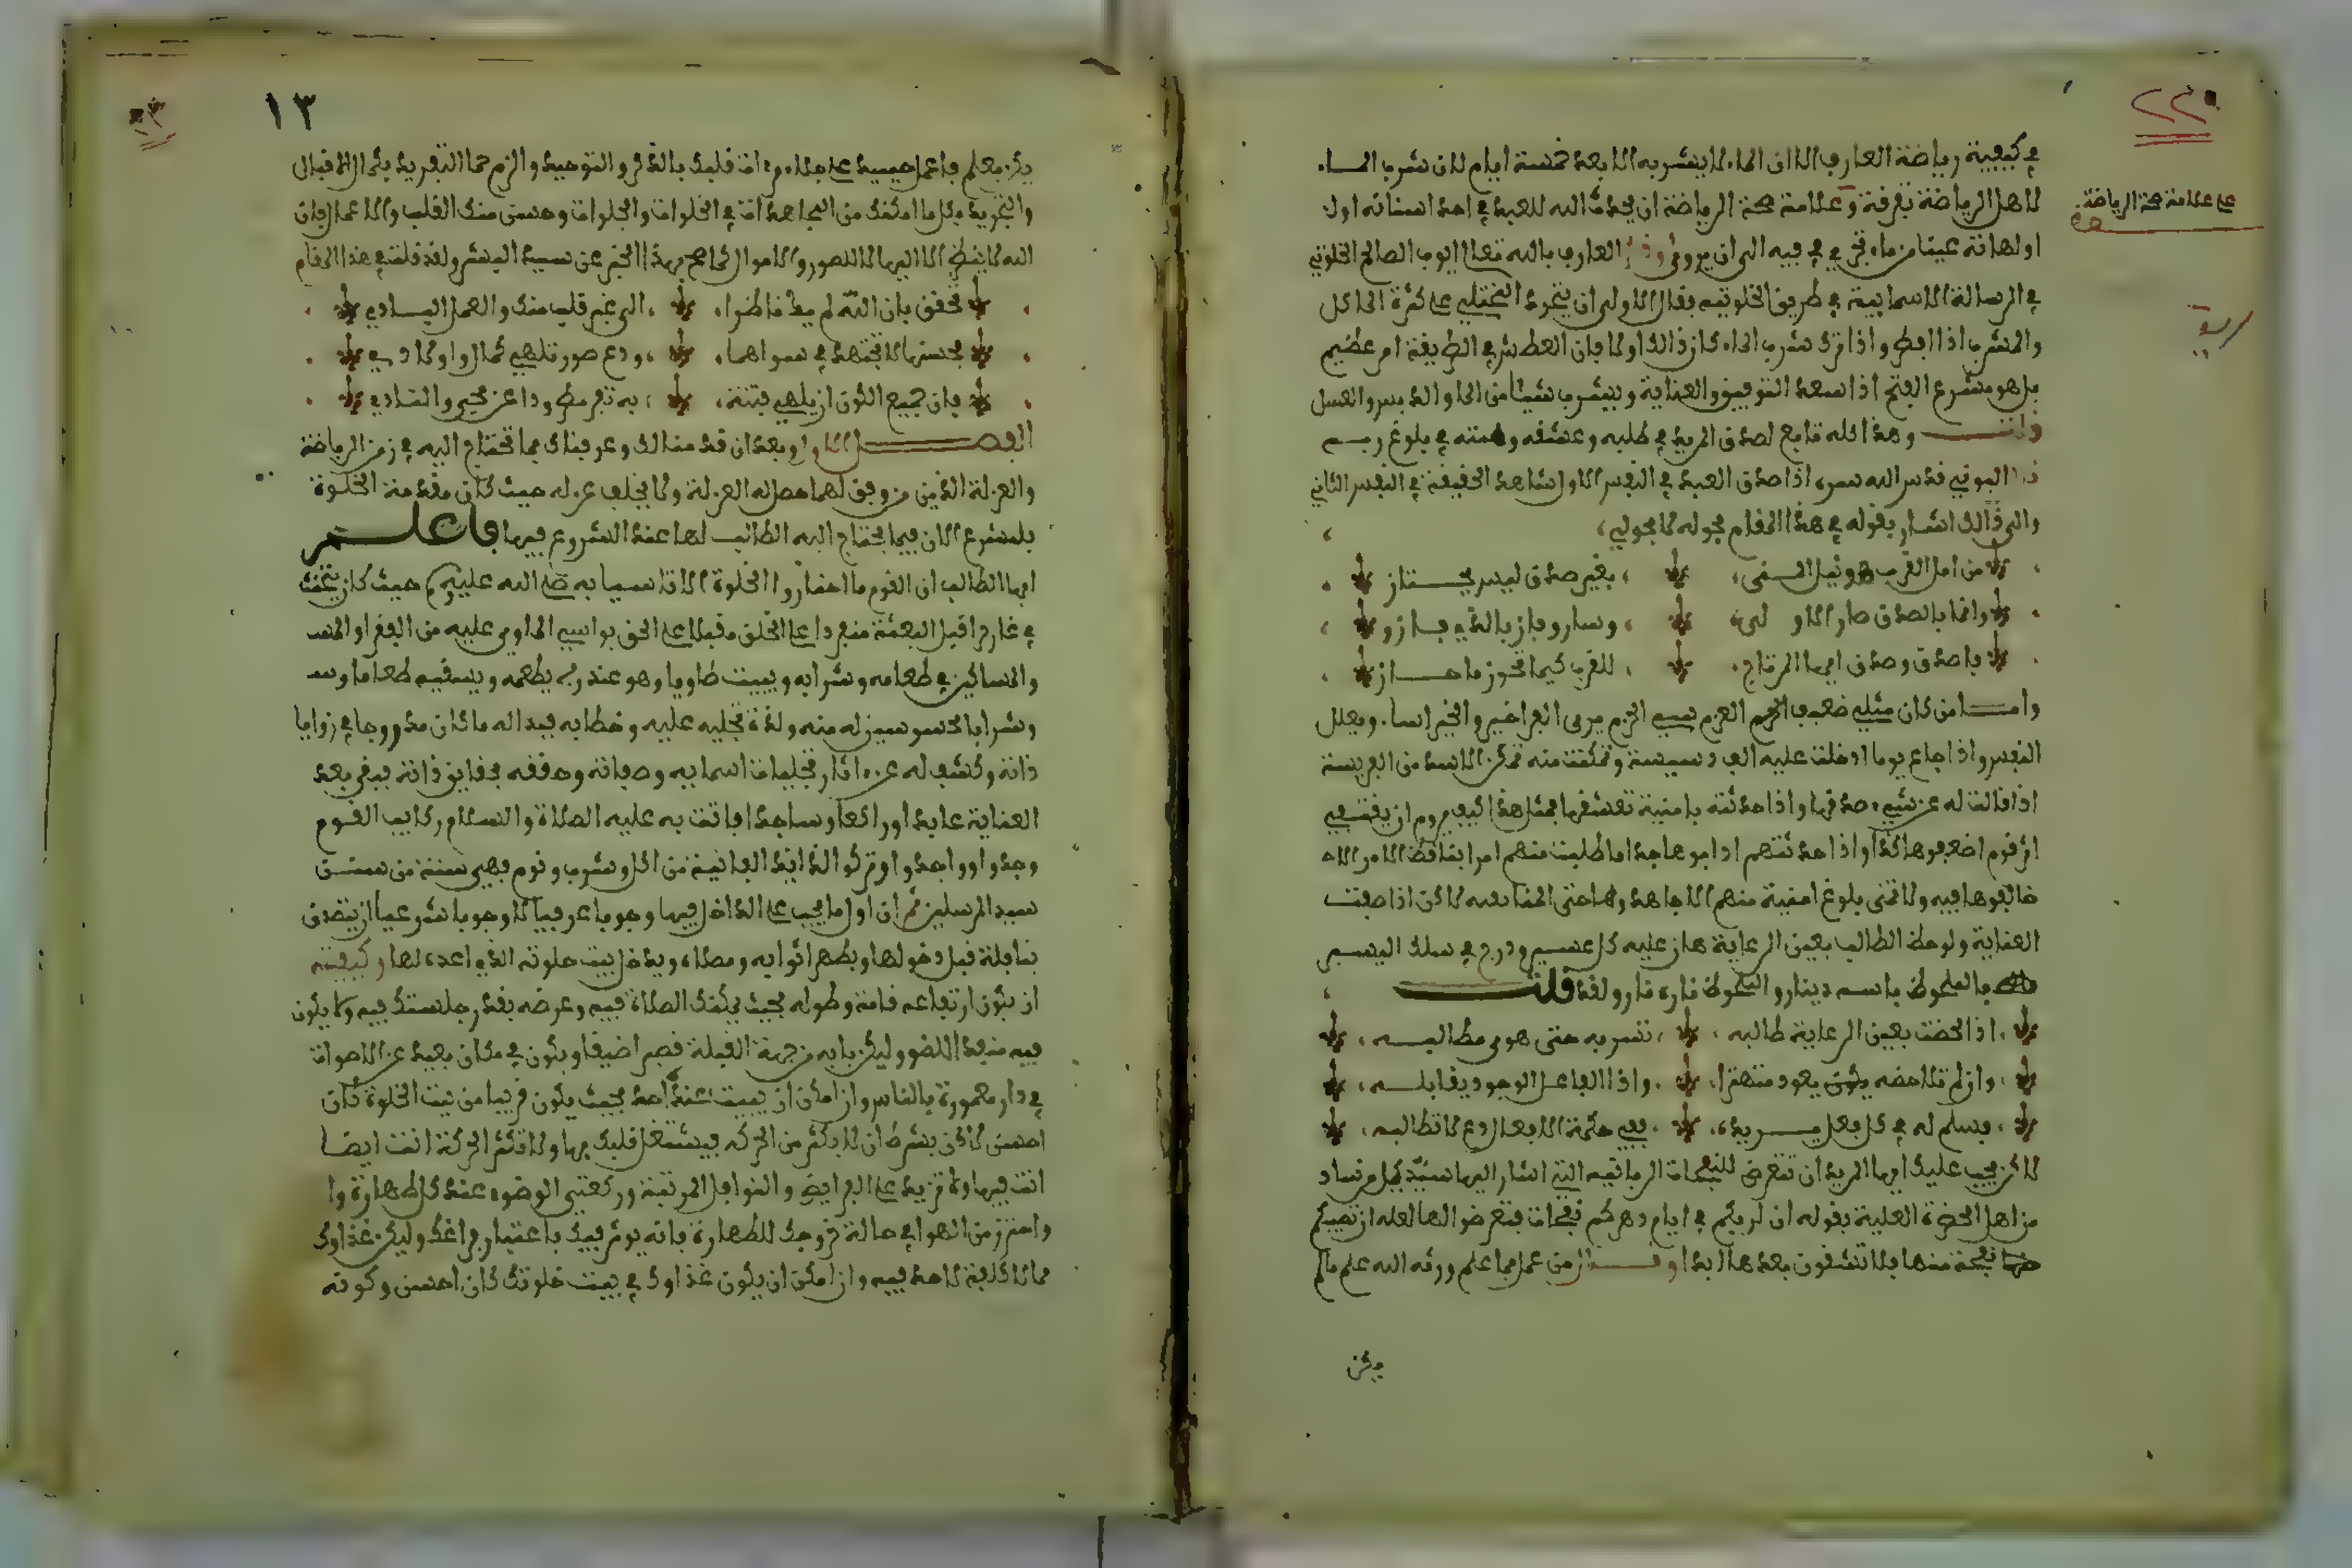 في كيفية رياضة العارف الا ان الماء لا يشربه الا بعد خمسة ايام لان شرب الماء
لاهل الرياضة تفرقة وعلامة صحة الرياضة ان يحدث الله للعبد في احد اسنانه اول
اولهاته عينا من ماء تجري في فيه الى ان يروى العارف بالله تعالى ايوب الصالح الخلوتي
في الرسالة الاسمايية في طريق الخلوتيه فقال الاولى ان يتعود المختلي على كثرة الماكل
والمشرب اذا افطر واذا ترك شرب الماء كان ذالك اولى فان العطش في الطريقة امر عظيم
بل هو مشرع الفتح اذا سعد التوفيق والعناية ويشرب شيئا من الماء والدبس والعسل
قلت وهذا كله تابع لصدق المريد في طلبه وعشقه وهمته في بلوغ
البوني قدس الله سره اذا صدق العبد في النفس الاول شاهد الحقيقة في النفس الثاني
والى ذالك اشار بقوله في هذا المقام بحوله لا بحولي
من امل القرب ونيل المنى بغير صدق ليس يجتاز
وانما بالصدق صار الاولى وسار وفاز بالذي فازو
فاصدق وصدق ايها المرتاج للقرب كيما تحوز ما حازو
وامــا من كان مثلي ضعيف العزم سيي الحزم يرمي العراضير والخيراسا ويعلل
النفس واذا جاع يوما ادخلت عليه الف دسيسة وتمكنت منه تمكن الاسد من الفريسة
اذا قالت له عن شيء صدقها واذا حدثته بامنية تعشقها فمثل هذا كيف يروم ان يقتفي
اثر قوم اضعفوها كدا واذا حدثتهم ادابوها جدا ما طلبت منهم امرا يناقض الامر الا
خالفوها فيه ولا تمنى بلوغ امنية منهم الا جاهدوها حتى المنا لاكن اذا صفت
العناية ولوحظ الطالب بعين الرعاية هان عليه كل عسير ودرج في سلك اليسير
فالملحوظ باسمه دينار والملحوظ ناره نار ولقد قلت
اذا لحضت بعين الرعاية طالبه تسر به حتى هو مطالبه
وان لم تلاحضه يعود منهزا واذا الفاعل الوجود يقابله
فسلم له في كل فعل يريده ففي حكمة الافعال دع لا تطالبه
لاكن يجب عليك ايها المريد ان تتعرض للنفحات الربانيه التي اشار اليها سيد كل من ساد
من اهل الحضرة العلية بقوله ان لربكم في ايام دهركم نفحات فتعرضوا لها لعله ان تصيبكم
نفحة منها فلا تشقون بعدها ابدا وقال من عمل بما علم ورثه الله علم ما لم
يكن
على علامة صحة الرياضة
١٣
يكن يعلم فاعمل حبيبي على جلاء مراة قلبك بالذكر والتوحيد والزم حما التفريد بكل الاقبال
والتجريد بكل ما امكنك من المجاهدات في الخلوات والجلوات وحسن منك القلب والاعمال فان
الله لا ينظر الا اليها لا للصور والاموال كما صح بهذا الخبر عن سيد البشر ولقد قلت في هذا المقام
تحقق بان الله لم يك ناظرا الى غير قلب منك والعمل البادي
بحسنها لا تجتهد في سواهما ودع صور تلهي كمال واولادي
فان جميع الكون ان يلهي فتنة به تفر مطرودا عن محمي والنادي
الفصــل الاول وبعد ان قدمنا لك وعرفناك بما تحتاج اليه في زمن الرياضة
والعزلة الذين من وفق لهما حصل له العزلة ولا يخلف عزله حيث كان مقدمة الخلوة
فلنشرع الان فيما يحتاج اليه الطالب لها عند الشروع فيها فاعلــم
ايها الطالب ان القوم ما اختاروا الخلوة الا تاسيا به صلى الله عليه وسلم حيث كان يتحنث
في غار حرا قبل البعثة منفردا على الخلق مقبلا على الحق يواسي الماوي عليه من الفقرا
والمساكين في طعامه وشرابه ويبيت طاويا وهو عند ربه يطعمه ويسقيه طعاما
وشرابا محسوسين له منه ولذة تجليه عليه وخطابه فبدا له ما كان مدروجا في زوايا
ذاته وكشف له عن اثار تجليات اسمايه وصفاته وحققه بحقايق ذاته فبقي بعد
العناية عابدا وراكعا وساجدا فاقت به عليه الصلاة والسلام ركايب القوم
وجدوا وواجدوا وتركوا الذايذ الفانية من اكل وشرب ونوم فهي سنة من سنن
سيد المرسلين ثم ان اول ما يجب على الداخل فيها وجوبا عرفيا لا وجوبا شرعيا ان يتصدق
بنافلة قبل دخولها ويطهر اثوابه ومصلاه ويدخل بيت خلوته الذي اعده لها وكيفيته
ان يكون ارتفاعه قامة وطوله بحيث يمكنك الصلاة فيه وعرضه بقدر جلستك فيه ولا يكون
فيه منفذا للضو وليكن بابه من جهة القبلة قصيرا ضيقا ويكون في مكان بعيد عن الاصوات
في دار معمورة بالناس وان امكن ان يبيت عندك احد بحيث يكون قريبا من بيت الخلوة كان
احسن لاكن بشرط ان لا يكثر من الحركه فيشتغل قلبك بها ولا تكثر الحركة انت ايضا
انت فيها ولا تزيد على الفرايض والنوافل المرتبة وركعتي الوضوء عند كل طهارة وا
واحترز من الهوا في حالة خروجك للطهارة فانه يوثر فيك باعتبار فراغك وليكن غذاوك
مما لا كلفة لاحد فيه وان امكن ان يكون غذاوك في بيت خلوتك كان احسن وكونه